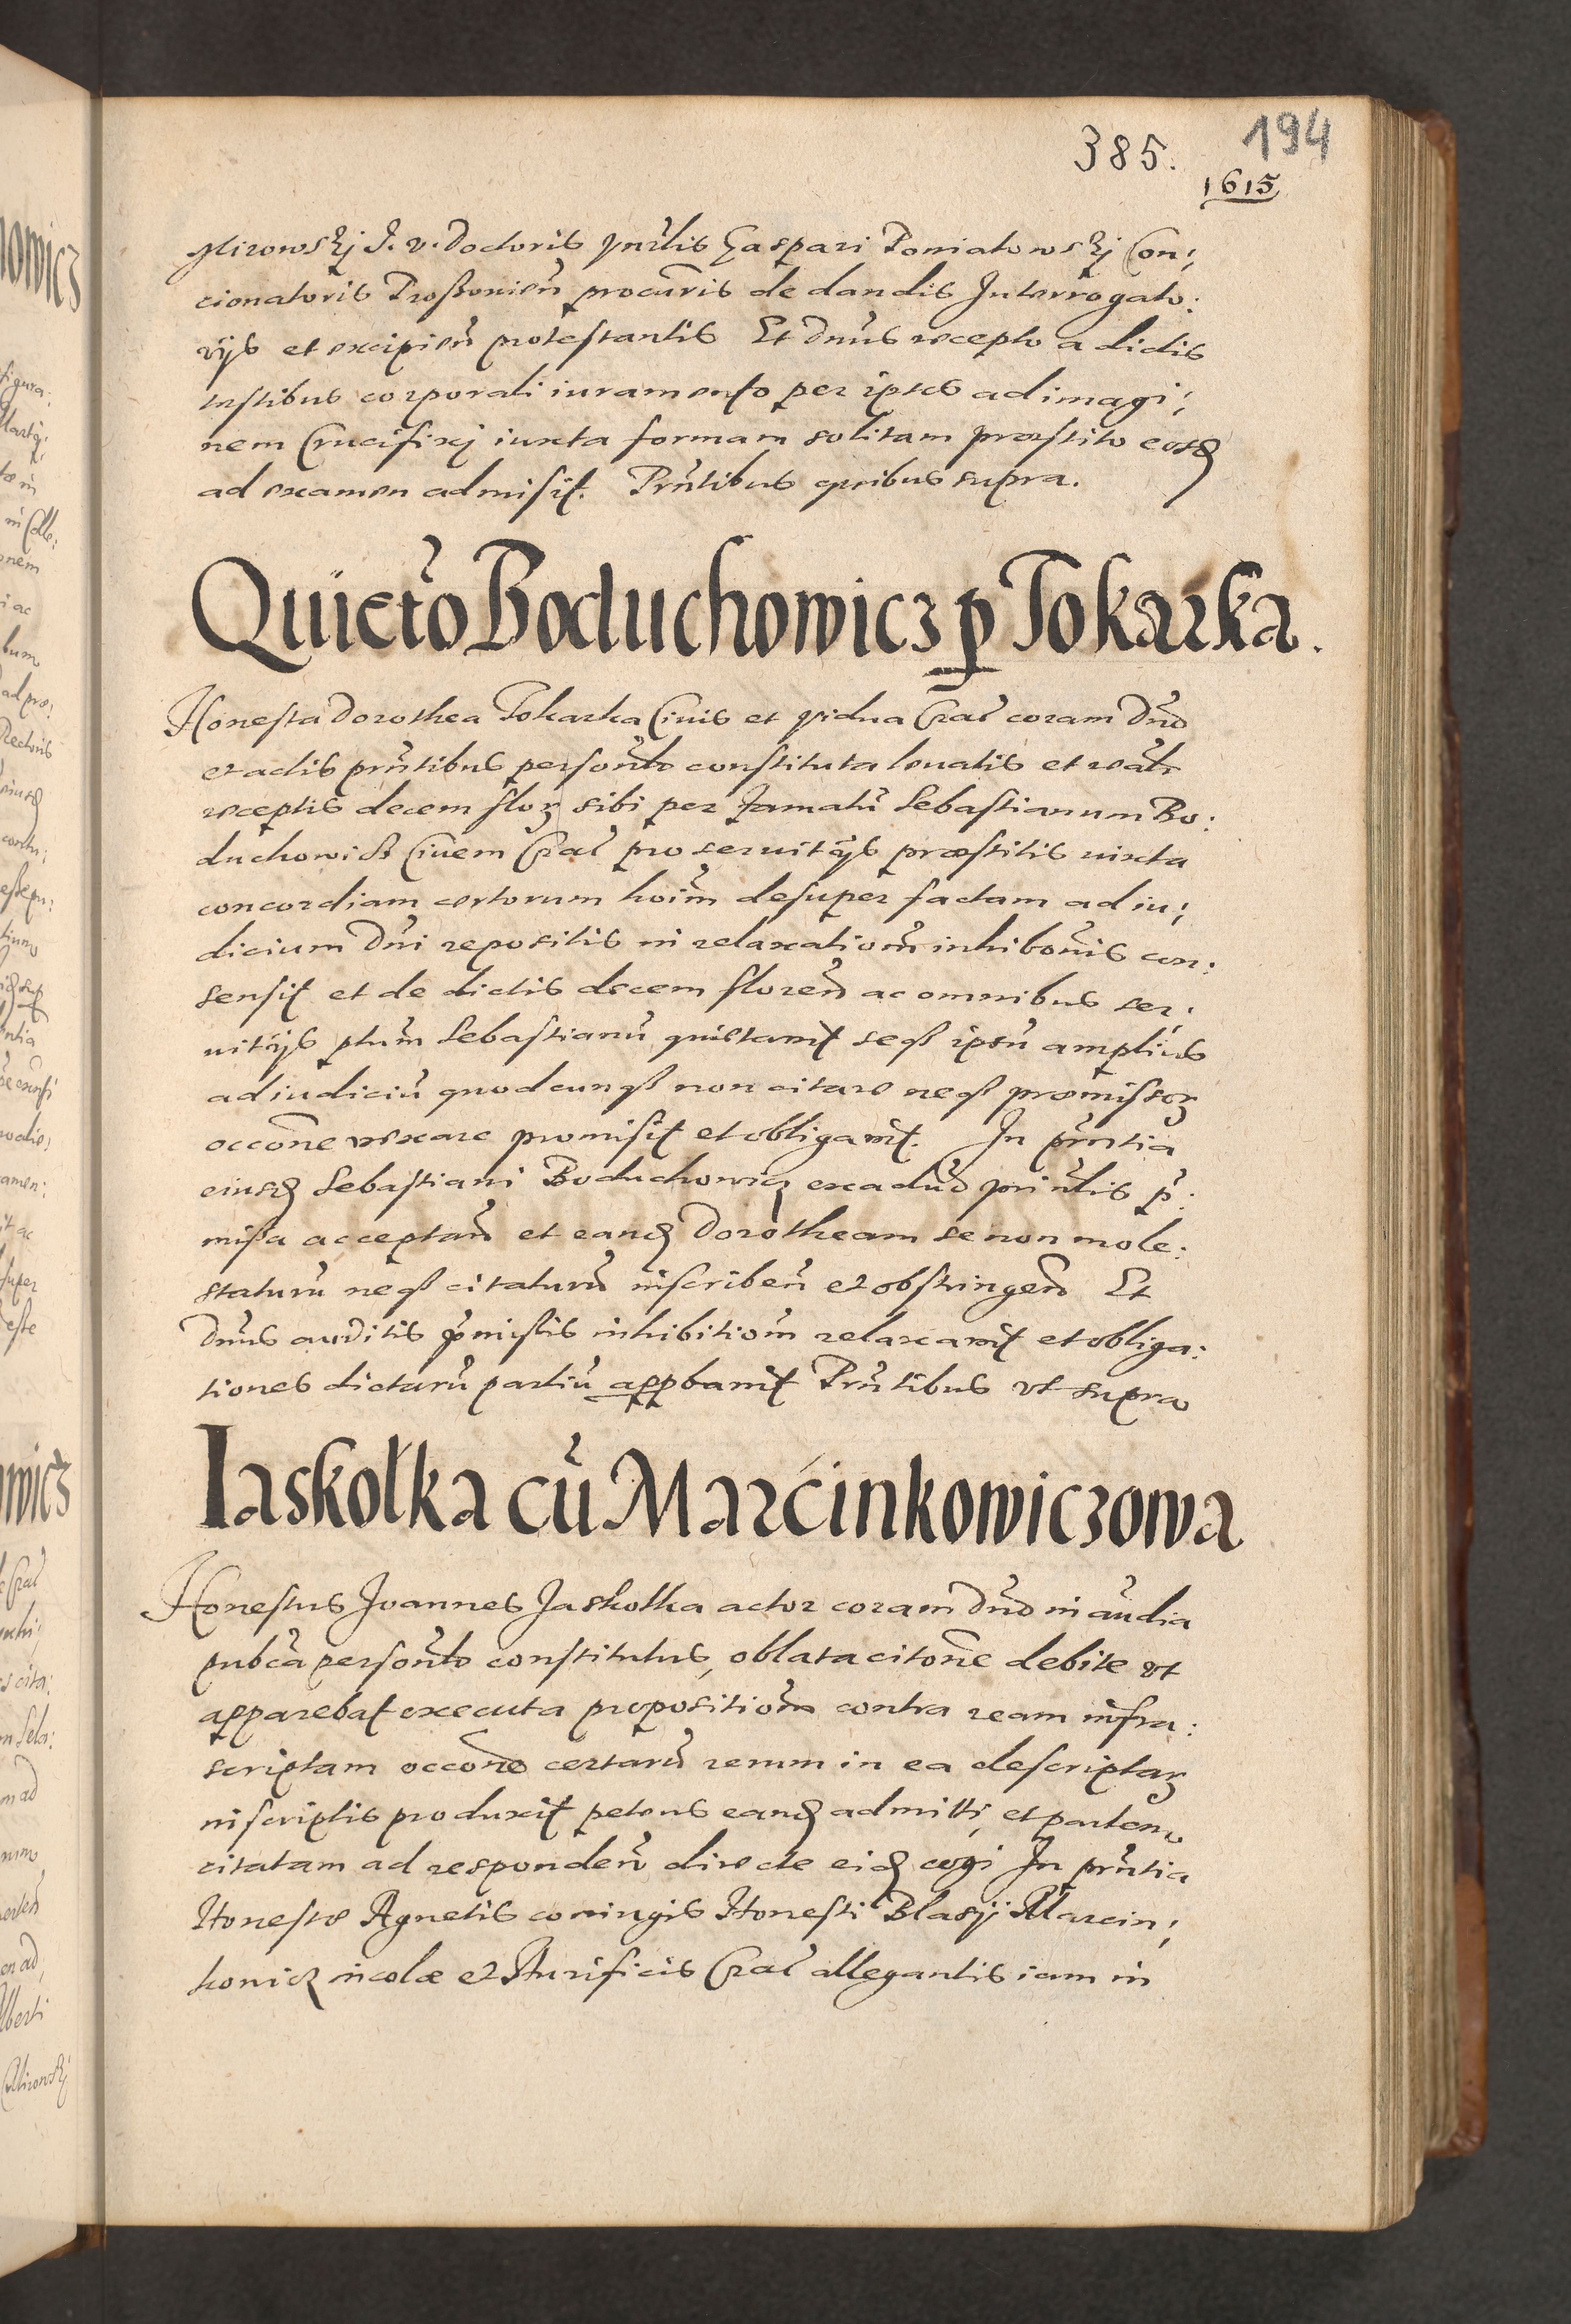 385. 194
1615
Mirowskj J. V. Doctoris ... Caspari Poniatowskj Con:
cionatoris Proßovien̄ procuris de dandis Interrogato:
rijs et excipien̄ protestantis Et Dnus recepto a dictis
testibus corporali iuramento per ipsos ad imagi:
nem Crucifixj iuxta formam solitam præstito eosd
ad examen admisit. Prntibus quibus supra.
Quieto Boduchowicz p Tokarka.
Honesta Dorothea Tokarka Civis et vidua Crac coram Dno
et actis prntibus personlr constituta levatis et realr
receptis decem flor sibi per Famatū Sebastianum Bo:
duchowicz Civem Crac pro servitijs præstitis iuxta
concordiam certorum hoim desuper factam ad iu:
dicium Dni repositis in relaxationē inhibonis con:
sensit et de dictis decem floren ac omnibus ser:
vitijs ptum Sebastianū quietavit seqz ipsū amplius
ad iudiciū quodcunqz non citare neqz præmissor
occone vexare promisit et obligavit. In prntia
eiusd Sebastiani Boduchowicz exadūo principlis p:
missa acceptan̄ et eand Dorotheam se non mole:
staturū neqz citaturū inscriben̄ et obstringen̄ Et
Dnus auditis pmissis inhibitionē relaxavit et obliga:
tiones dictarū partiū appbavit Prntibus vt supra
Iaskołka cū Marcinkowiczowa
Honestus Joannes Jaskolka actor coram Dno in audia
pubca personlr constitutus, oblata citone debite vt
apparebat executa propositionē contra ream infra:
scriptam occone certarū rerum in ea descriptar
in scriptis produxit petens eand admitti, et partem
citatam ad responden̄ directe eid cogi In prntia
Honestæ Agnetis coniugis Honesti Blasij Marcin:
kowicz incolæ et Aurificis Crac allegantis iam in